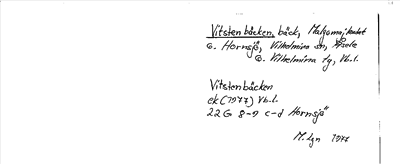 Vitstenbäcken, bäck, Malgomaj,
o. Hornsjö, Vilhelmina sn, Åsele
o. Vilhelmina tg, Vb.l.
Vitstenbäcken
ek (1977) Vb.l.
22G 8-9 c-d Hornsjö
M. Lgn 1977